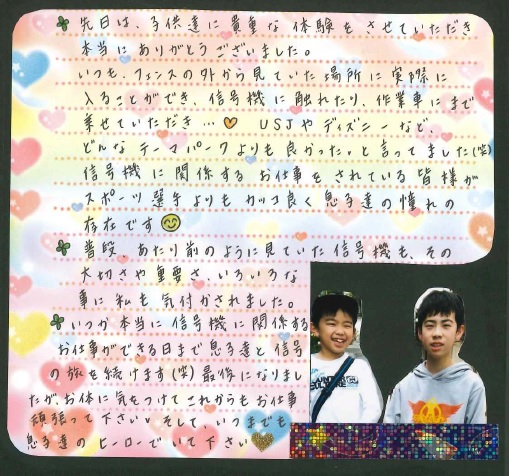 先日は、子供達に貴重な体験をさせていただき
本当にありがとうございました。
いつも、フェンスの外から見ていた場所に実際に
入ることができ、信号機に触れたり、作業車にまで
乗せていただき… USJやディズニーなど、
どんなテーマパークよりも良かったっと言ってました(笑)
信号機に関係するお仕事をされている皆様が
スポーツ選手よりもカッコ良く息子達の憧れの
存在です
普段、あたり前のように見ていた信号機も、その
大切さや重要さ、いろいろな
事に私も気付かされました。
いつか本当に信号機に関係する
お仕事ができる日まで息子達と信号
の旅を続けます(笑)最後になりまし
たが、お体に気をつけてこれからもお仕事
頑張って下さい。そして、いつまでも
息子達のヒーローでいて下さい